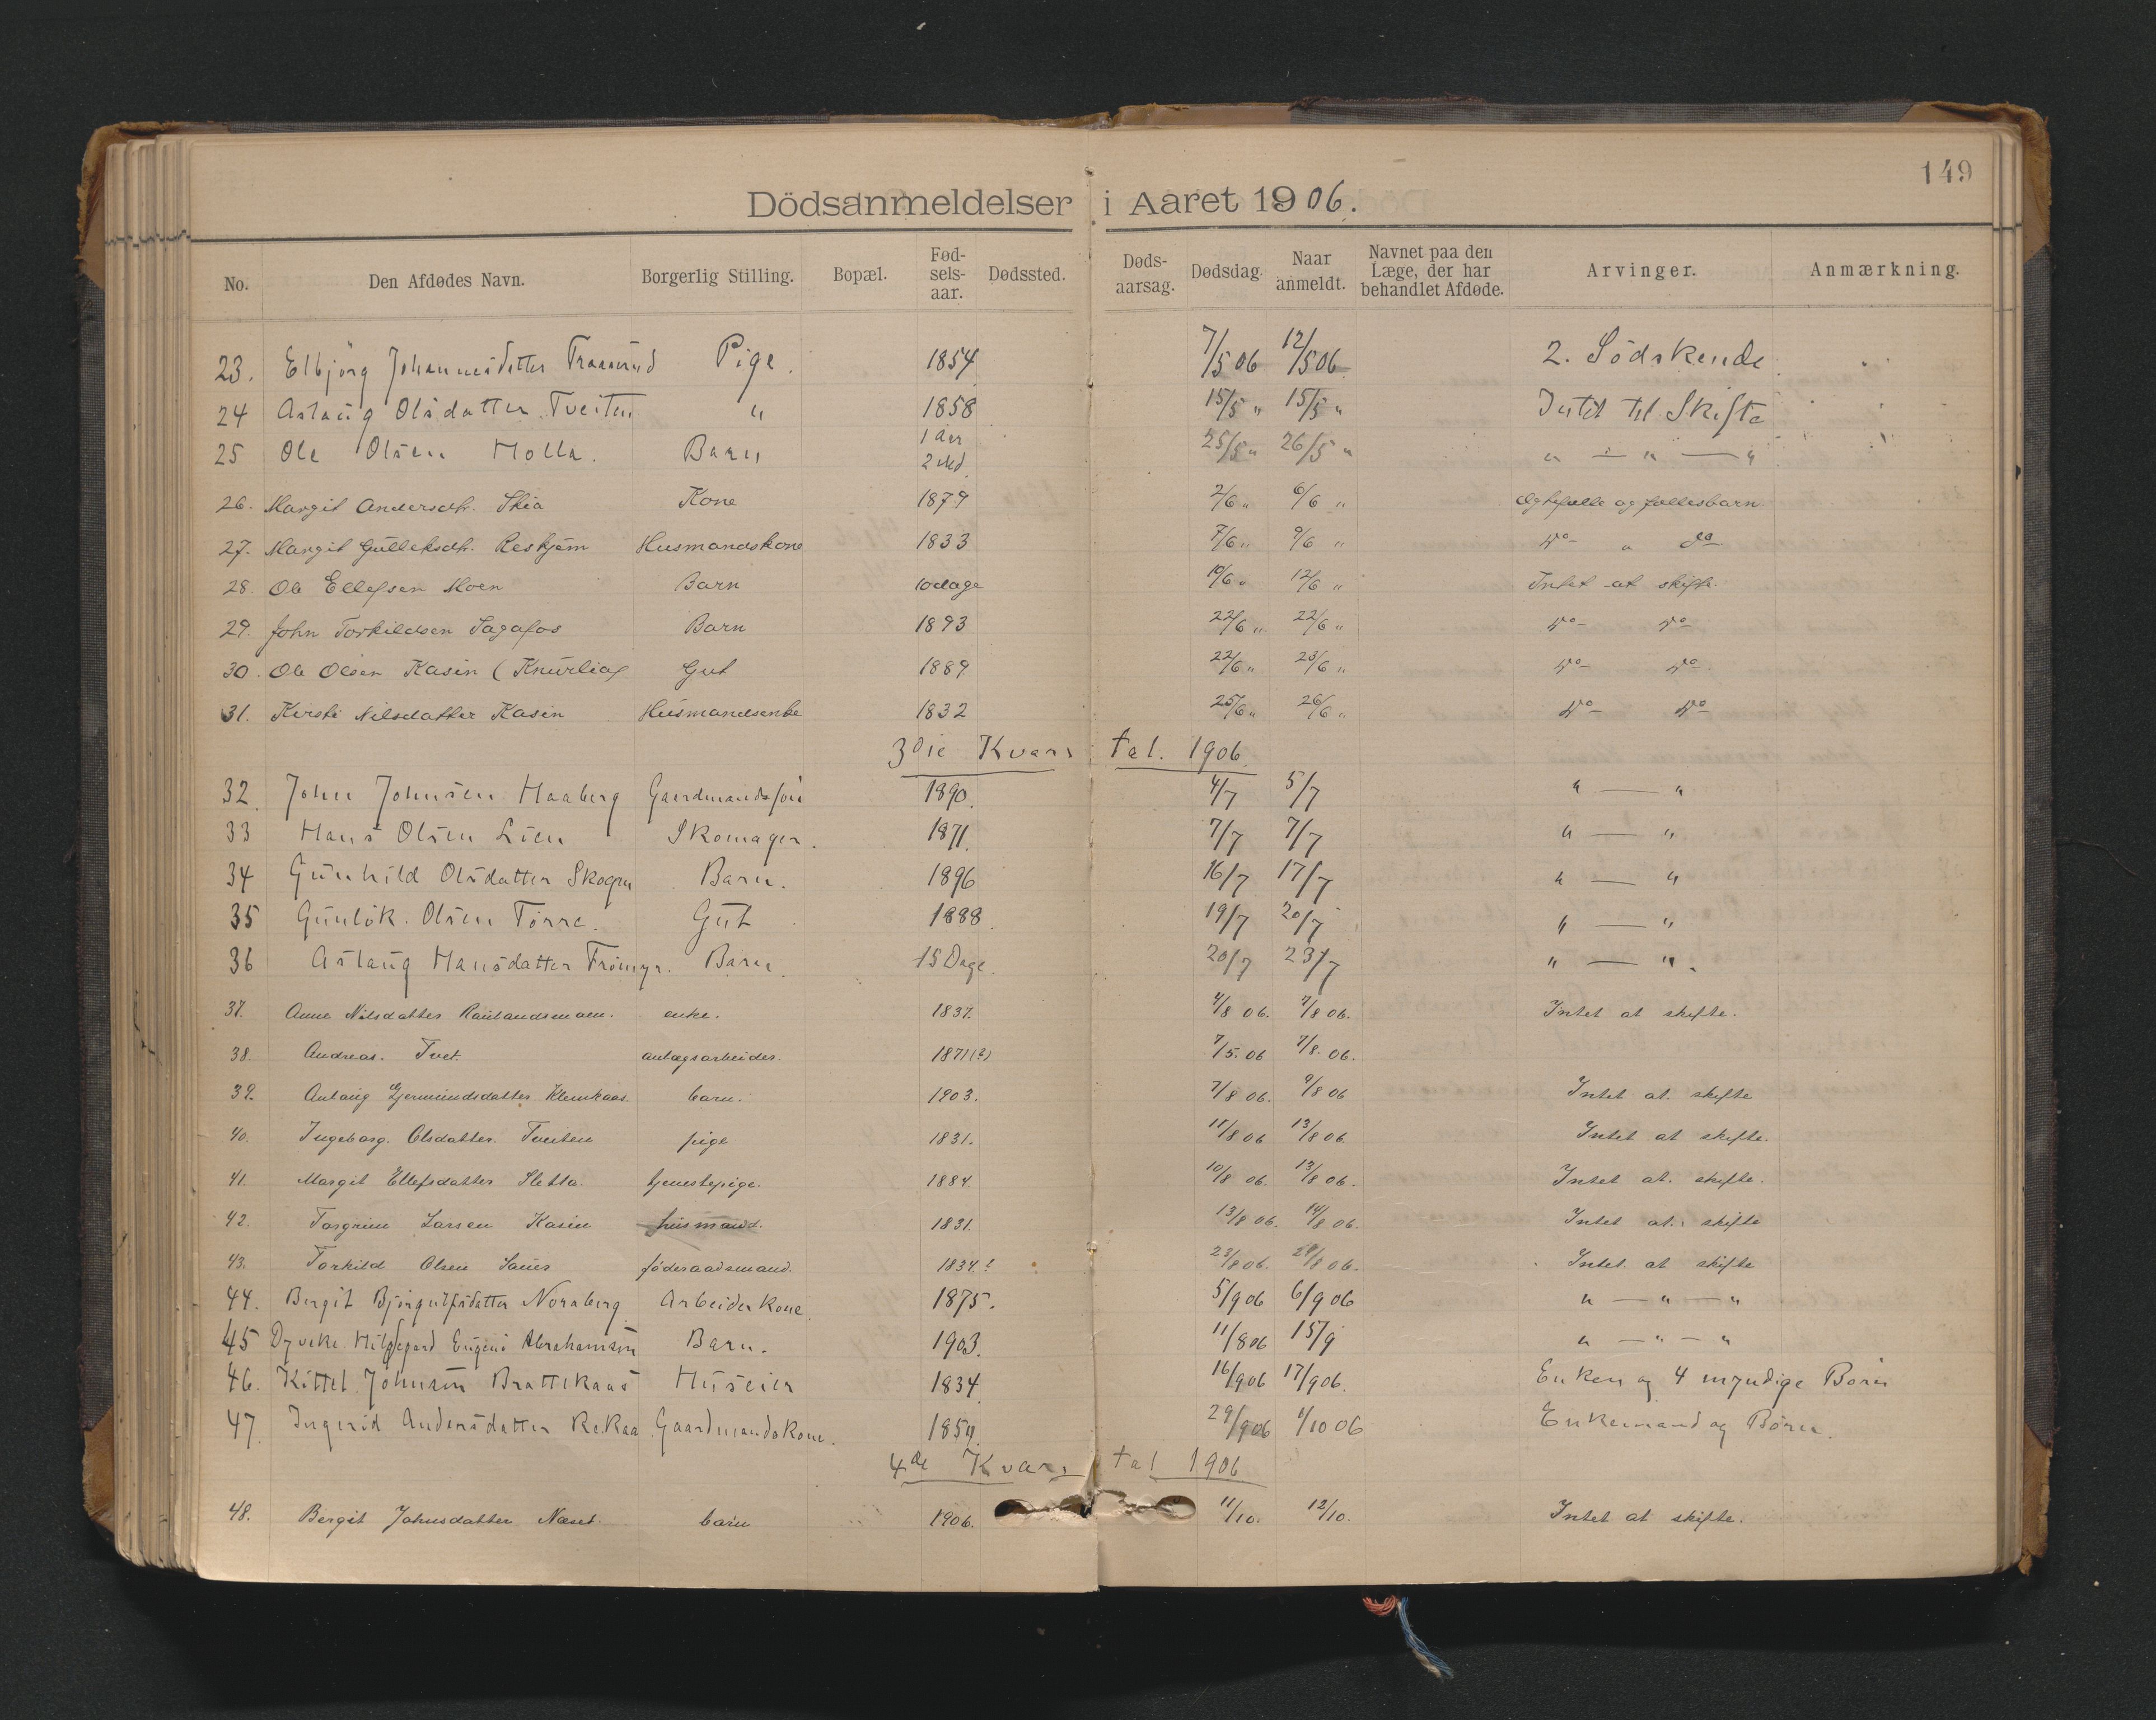 149
Dödsanmeldelser i Aaret 1906.
No. Den Afdødes Navn. Borgerlig Stilling. Bopæl. Fød-sels-aar. Dødssted. Døds-aarsag. Dødsdag. Naar anmeldt. Navnet paa den Læge, der har behandlet Afdøde. Arvinger. Anmærkning.
23. Elbjörg Johannesdatter Pige. 1854 7/5 06 12/5 06. 2. Södskende
24 Aslaüg Olsdatter Tveiten " 1858 15/5 " 15/5 " Intet til Skifte
25 Ole Olsen Molla. Barn 1 Aar 2 Md. 25/5 " 26/5 " " — " — "
26. Margit Andersdtr. Skia Kone 1879 2/6 " 6/6 " Ægtefælle og fællesbarn
27. Margit Gülleksdtr. Reskjem Husmandskone 1833 7/6 " 9/6 " Do " do
28. Ole Ellefsen Moen Barn 10 dage 10/6 " 12/6 " Intet at skifte.
29. John Torkildsen Sagafos Barn 1893 22/6 " 22/6 " Do Do
30. Ole Olsen Kasin (Knürlia) Gut 1889 22/6 " 23/6 " Do Do
31. Kirsti Nilsdatter Kasin Hüsmandsenke 1832 25/6 " 26/6 " Do Do
3die Kvartal. 1906.
32. John Johnsen Haaberg 1890. 4/7 5/7 " — "
33 Hans Olsen Lien Skomager. 1871. 7/7 7/7 " — "
34 Günhild Olsdatter Skogen Barn. 1896 16/7 17/7 " — "
35 Günlök. Olsen Törre. Güt 1888. 19/7 20/7 " — "
36 Aslaüg Hansdatter Barn. 15 Dage. 20/7 23/7 " — ".
37. Anne Nilsdatter Raulandsmoen. enke. 1837. 4/8 06. 7/8 06. Intet at skifte.
38. Andreas. Tvet. anlægsarbeider. 1871(?) 7/5. 06 7/8. 06.
39. Aslaug Gjermundsdatter Klemkaas. barn. 1903. 7/8 06. 9/8 06 Intet at. skifte
40. Ingeborg. Olsdatter. Tveiten pige 1831. 11/8 06 13/8 06 Intet at skifte.
41. Margit Ellefsdatter Sletta. tjenestepige. 1884. 10/8 06. 13/8 06. Intet at. skifte.
42. Torgrim Larsen Kasin husmand. 1831. 13/8 06. 14/8 06. Intet at. skifte
43. Torkild Olsen Saües föderaadsmand. 1834.? 23/8 06. 8 06. Intet at skifte
44. Bergit Björgulfsdatter Noraberg Arbeiderkone 1875. 5/9 06 6/9 06 " — " — "
45 Dyveke Hildegard Eugeni Abrahamsen Barn. 1903. 11/8 06 15/9 " — " — "
46. Kittel Johnsen Brattekaas Hüseier 1834. 16/9 06 17/9 06. Enken og 4 myndige Börn
47. Ingerid Andersdatter Rekaa Gaardmandskone. 29/9 06 1/10 06 Enkemand og Börn.
4de Kvartal 1906
48. Bergit Johnsdatter Næset. barn 1906. 11/10. 12/10. Intet at skifte.